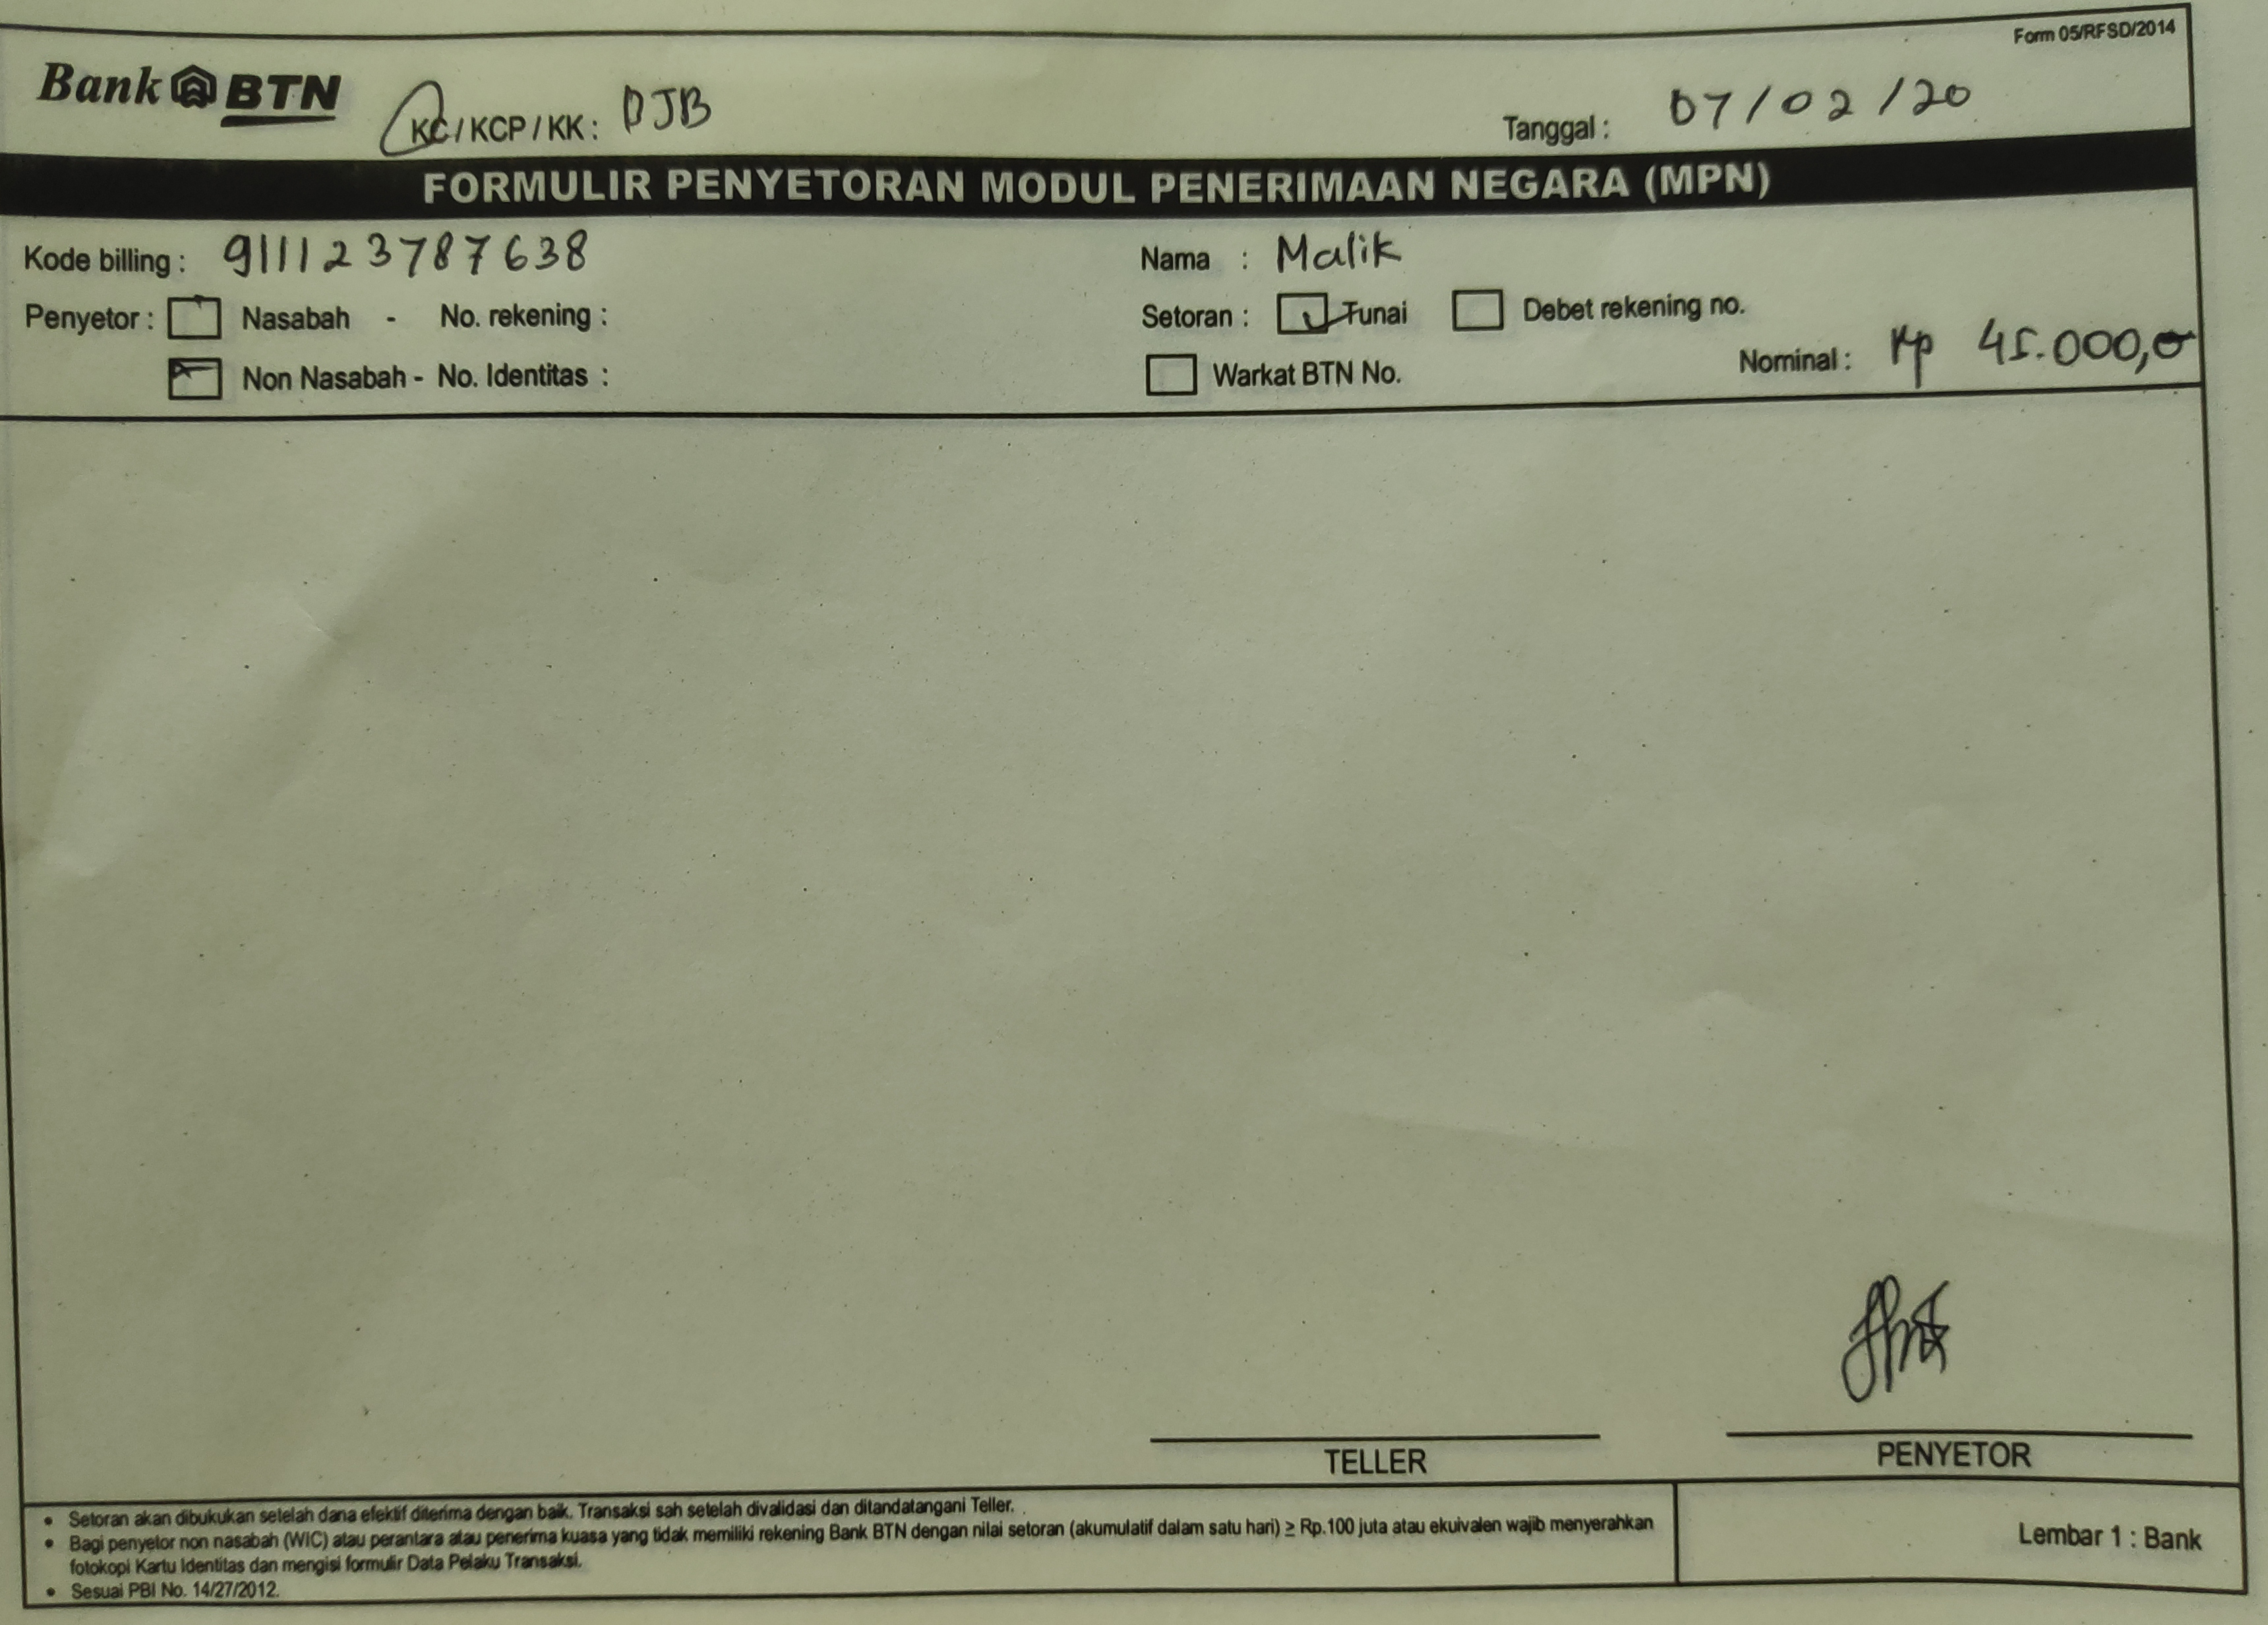 Form 05/RFSD/2014
Bank BTN
KC/KCP/KK: DJB
Tanggal: 07/02/20
FORMULIR PENYETORAN MODUL PENERIMAAN NEGARA (MPN)
Kode billing: 911123787638
Nama : Malik
Penyetor: Nasabah - No. rekening :
Setoran: Tunai Debet rekening no.
Non Nasabah - No. Identitas :
Warkat BTN No.
Nominal: Rp 45.000,0
TELLER
PENYETOR
• Setoran akan dibukukan setelah dana efektif diterima dengan baik. Transaksi sah setelah divalidasi dan ditandatangani Teller.
• Bagi penyetor non nasabah (WIC) atau perantara atau penerima kuasa yang tidak memiliki rekening Bank BTN dengan nilai setoran (akumulatif dalam satu hari) ≥ Rp.100 juta atau ekuivalen wajib menyerahkan
fotokopi Kartu Identitas dan mengisi formulir Data Pelaku Transaksi.
• Sesuai PBI No. 14/27/2012.
Lembar 1 : Bank